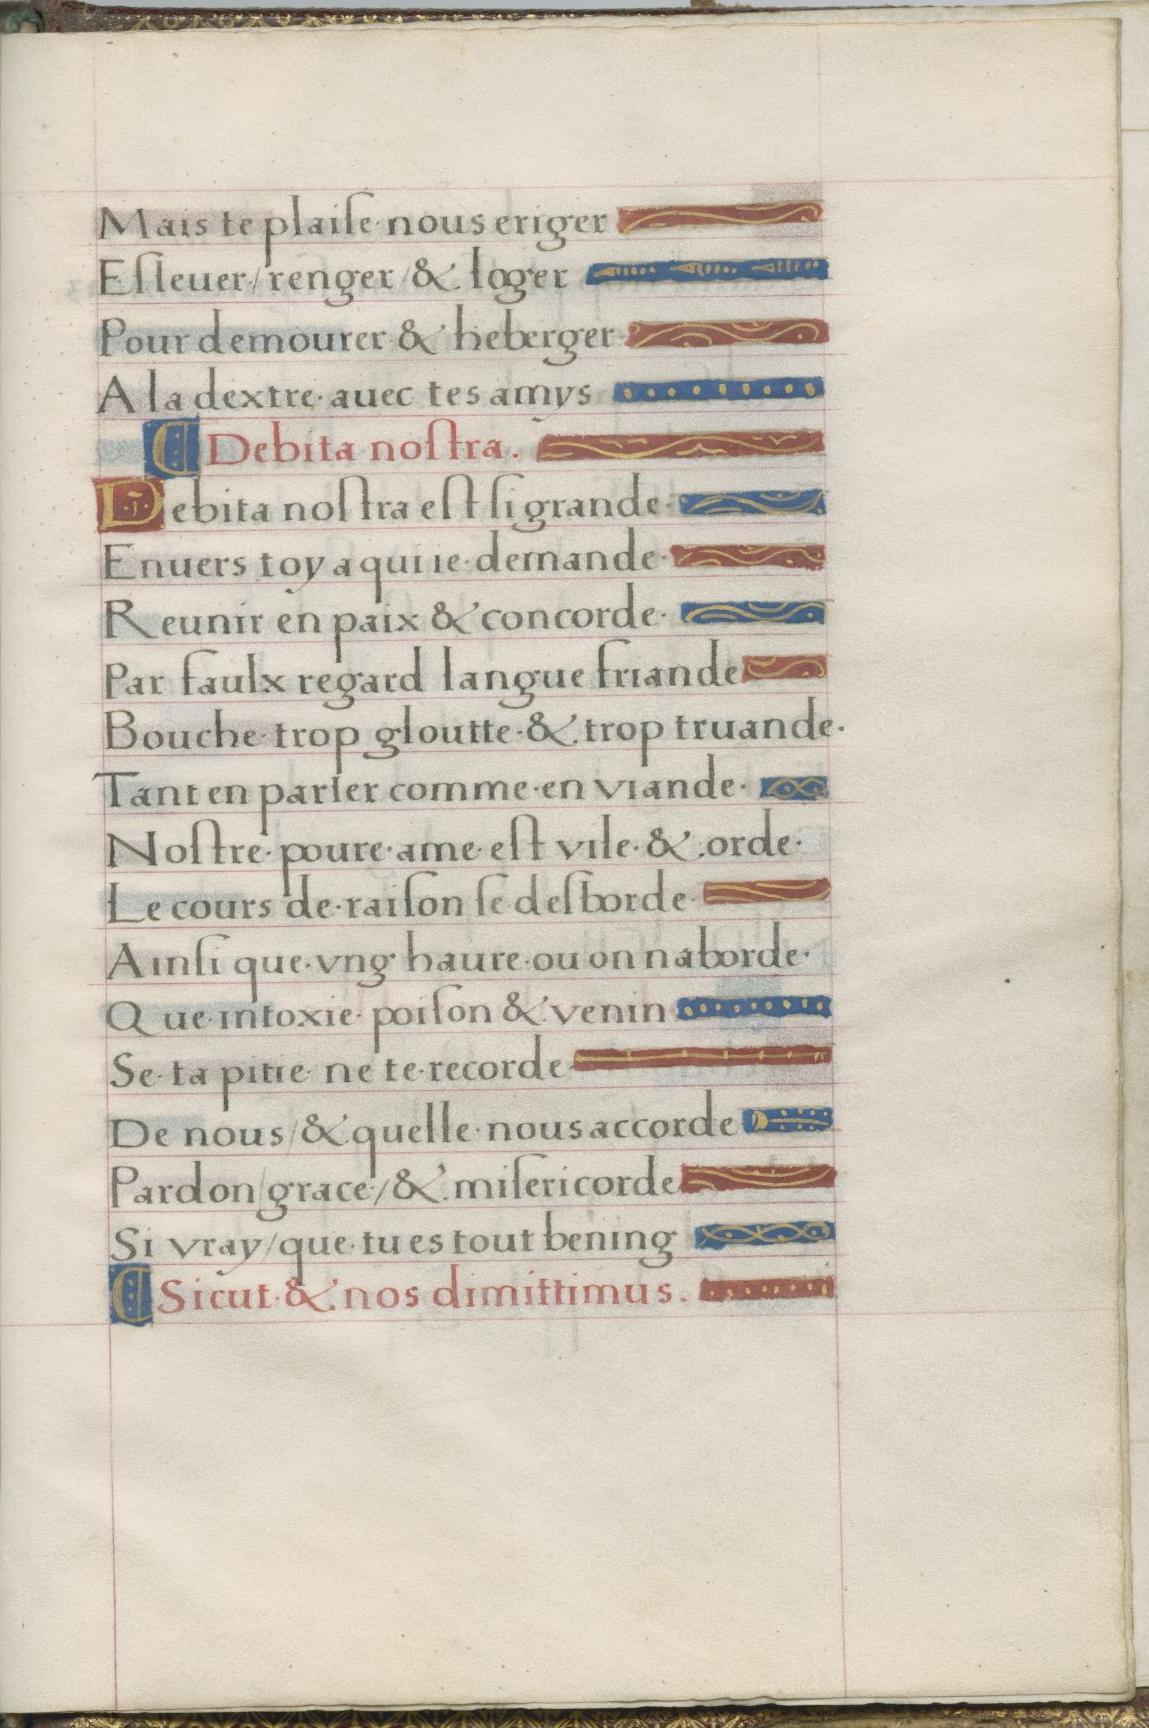 Mais te plaiſe nous eriger
Eſleuer / renger / & loger
Pour demourer & heberger
A la dextre auec tes amys
Debita noſtra.
Debita noſtra eſt ſi grande
Enuers toy a qui ie demande
Reunir en paix & concorde
Par faulx regard langue friande
Bouche trop gloutte & trop truande.
Tant en parler comme en viande.
Noſtre poure ame eſt vile & orde.
Le cours de raiſon ſe deſborde
Ainſi que vng haure ou on naborde.
Que intoxie poiſon & venin
Se ta pitie ne te recorde
De nous / & quelle nous accorde
Pardon / grace / & miſericorde
Si vray / que tu es tout bening
Sicut & nos dimittimus.